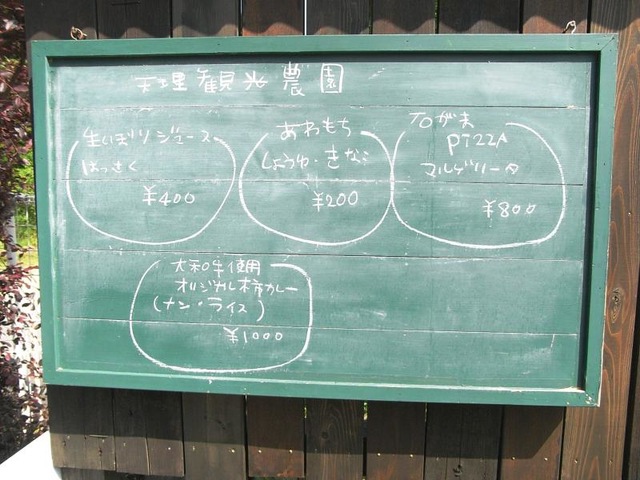 天理観光農園
生しぼりジュース
はっさく
¥400
あわもち
しょうゆ・きなこ
¥200
PIZZA
マルゲリータ
¥800
大和牛使用
オリジナル柿カレー
(ナン・ライス)
¥1000